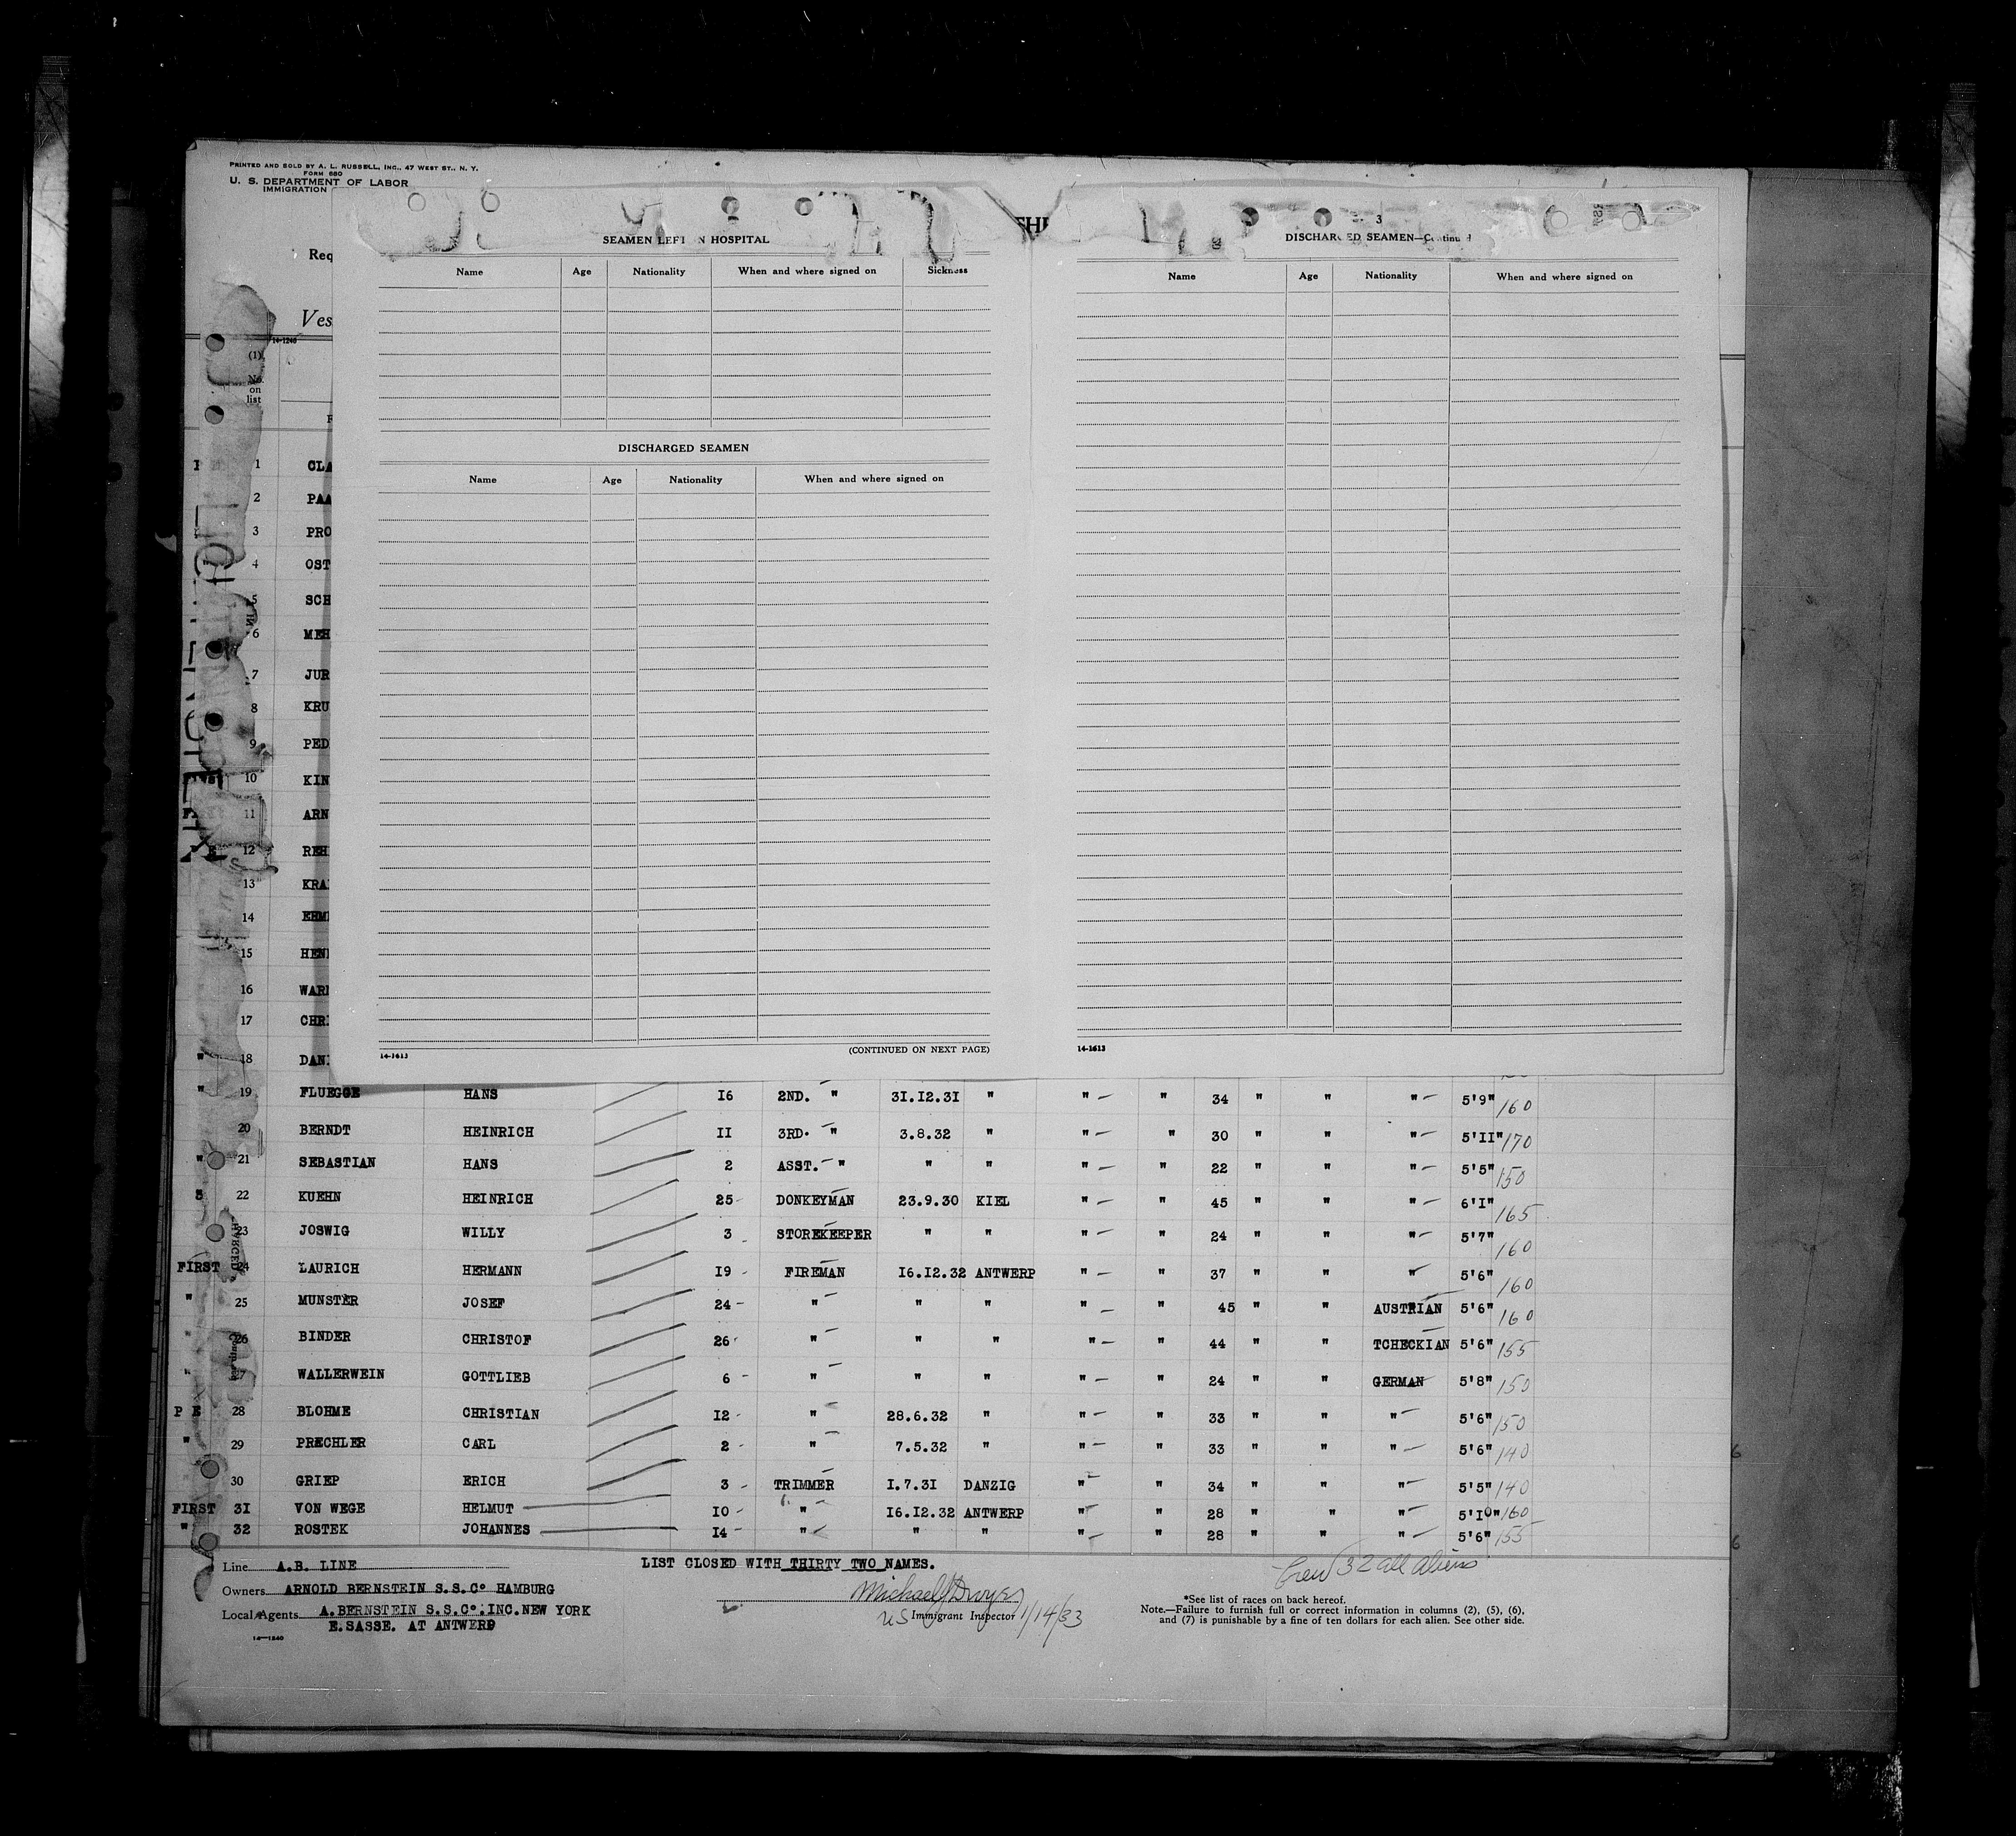 PRINTED AND SOLD BY A. L. RUSSELL, INC., 47 WEST ST., N. Y.
FORM 680
U. S. DEPARTMENT OF LABOR
IMMIGRATION
Req
Ves
14-1240
(1)
No. on list
SEAMEN LEFT IN HOSPITAL
Name Age Nationality When and where signed on Sickness
DISCHARGED SEAMEN
Name Age Nationality When and where signed on
14-1613 (CONTINUED ON NEXT PAGE)
3
DISCHARGED SEAMEN—Continued
Name Age Nationality When and where signed on
14-1613
1 CLA
2 PAA
3 PRO
4 OST
5 SCH
6 MEH
7 JUR
8 KRU
9 PED
10 KIN
11 ARN
12 REH
13 KRA
14 EHM
15 HEN
16 WAR
17 CHR
" 18 DAN
" 19 FLUEGGE HANS 16 2ND. " 31.12.31 " " — " 34 " " " — 5'9" 160
20 BERNDT HEINRICH II 3RD. " 3.8.32 " " — " 30 " " " — 5'II" 170
" 21 SEBASTIAN HANS 2 ASST. " " " " — " 22 " " " — 5'5" 150
22 KUEHN HEINRICH 25 DONKEYMAN 23.9.30 KIEL " — " 45 " " " — 6'I" 165
23 JOSWIG WILLY 3 STOREKEEPER " " " — " 24 " " " — 5'7" 160
FIRST 24 LAURICH HERMANN 19 FIREMAN 16.12.32 ANTWERP " — " 37 " " " 5'6" 160
" 25 MUNSTER JOSEF 24 " " " " — " 45 " " AUSTRIAN 5'6" 160
26 BINDER CHRISTOF 26 " " " " — " 44 " " TCHECKIAN 5'6" 155
" 27 WALLERWEIN GOTTLIEB 6 " " " " — " 24 " " GERMAN 5'8" 150
P E 28 BLOHME CHRISTIAN 12 " 28.6.32 " " — " 33 " " " — 5'6" 150
" 29 PRECHLER CARL 2 " 7.5.32 " " — " 33 " " " — 5'6" 140
30 GRIEP ERICH 3 TRIMMER I.7.31 DANZIG " " 34 " " " — 5'5" 140
FIRST 31 VON WEGE HELMUT 10 " 16.12.32 ANTWERP " " 28 " " " — 5'10" 160
" 32 ROSTEK JOHANNES 14 " " " " — " 28 " " " — 5'6" 155
Line A.B. LINE
Owners ARNOLD BERNSTEIN S.S.Co HAMBURG
Local Agents A.BERNSTEIN S.S.Co.INC.NEW YORK
E.SASSE. AT ANTWERP
14-1240
LIST CLOSED WITH THIRTY TWO NAMES.
Michael J Dwyer
US Immigrant Inspector 1/14/33
Crew 32 all aliens
*See list of races on back hereof.
Note.—Failure to furnish full or correct information in columns (2), (5), (6),
and (7) is punishable by a fine of ten dollars for each alien. See other side.